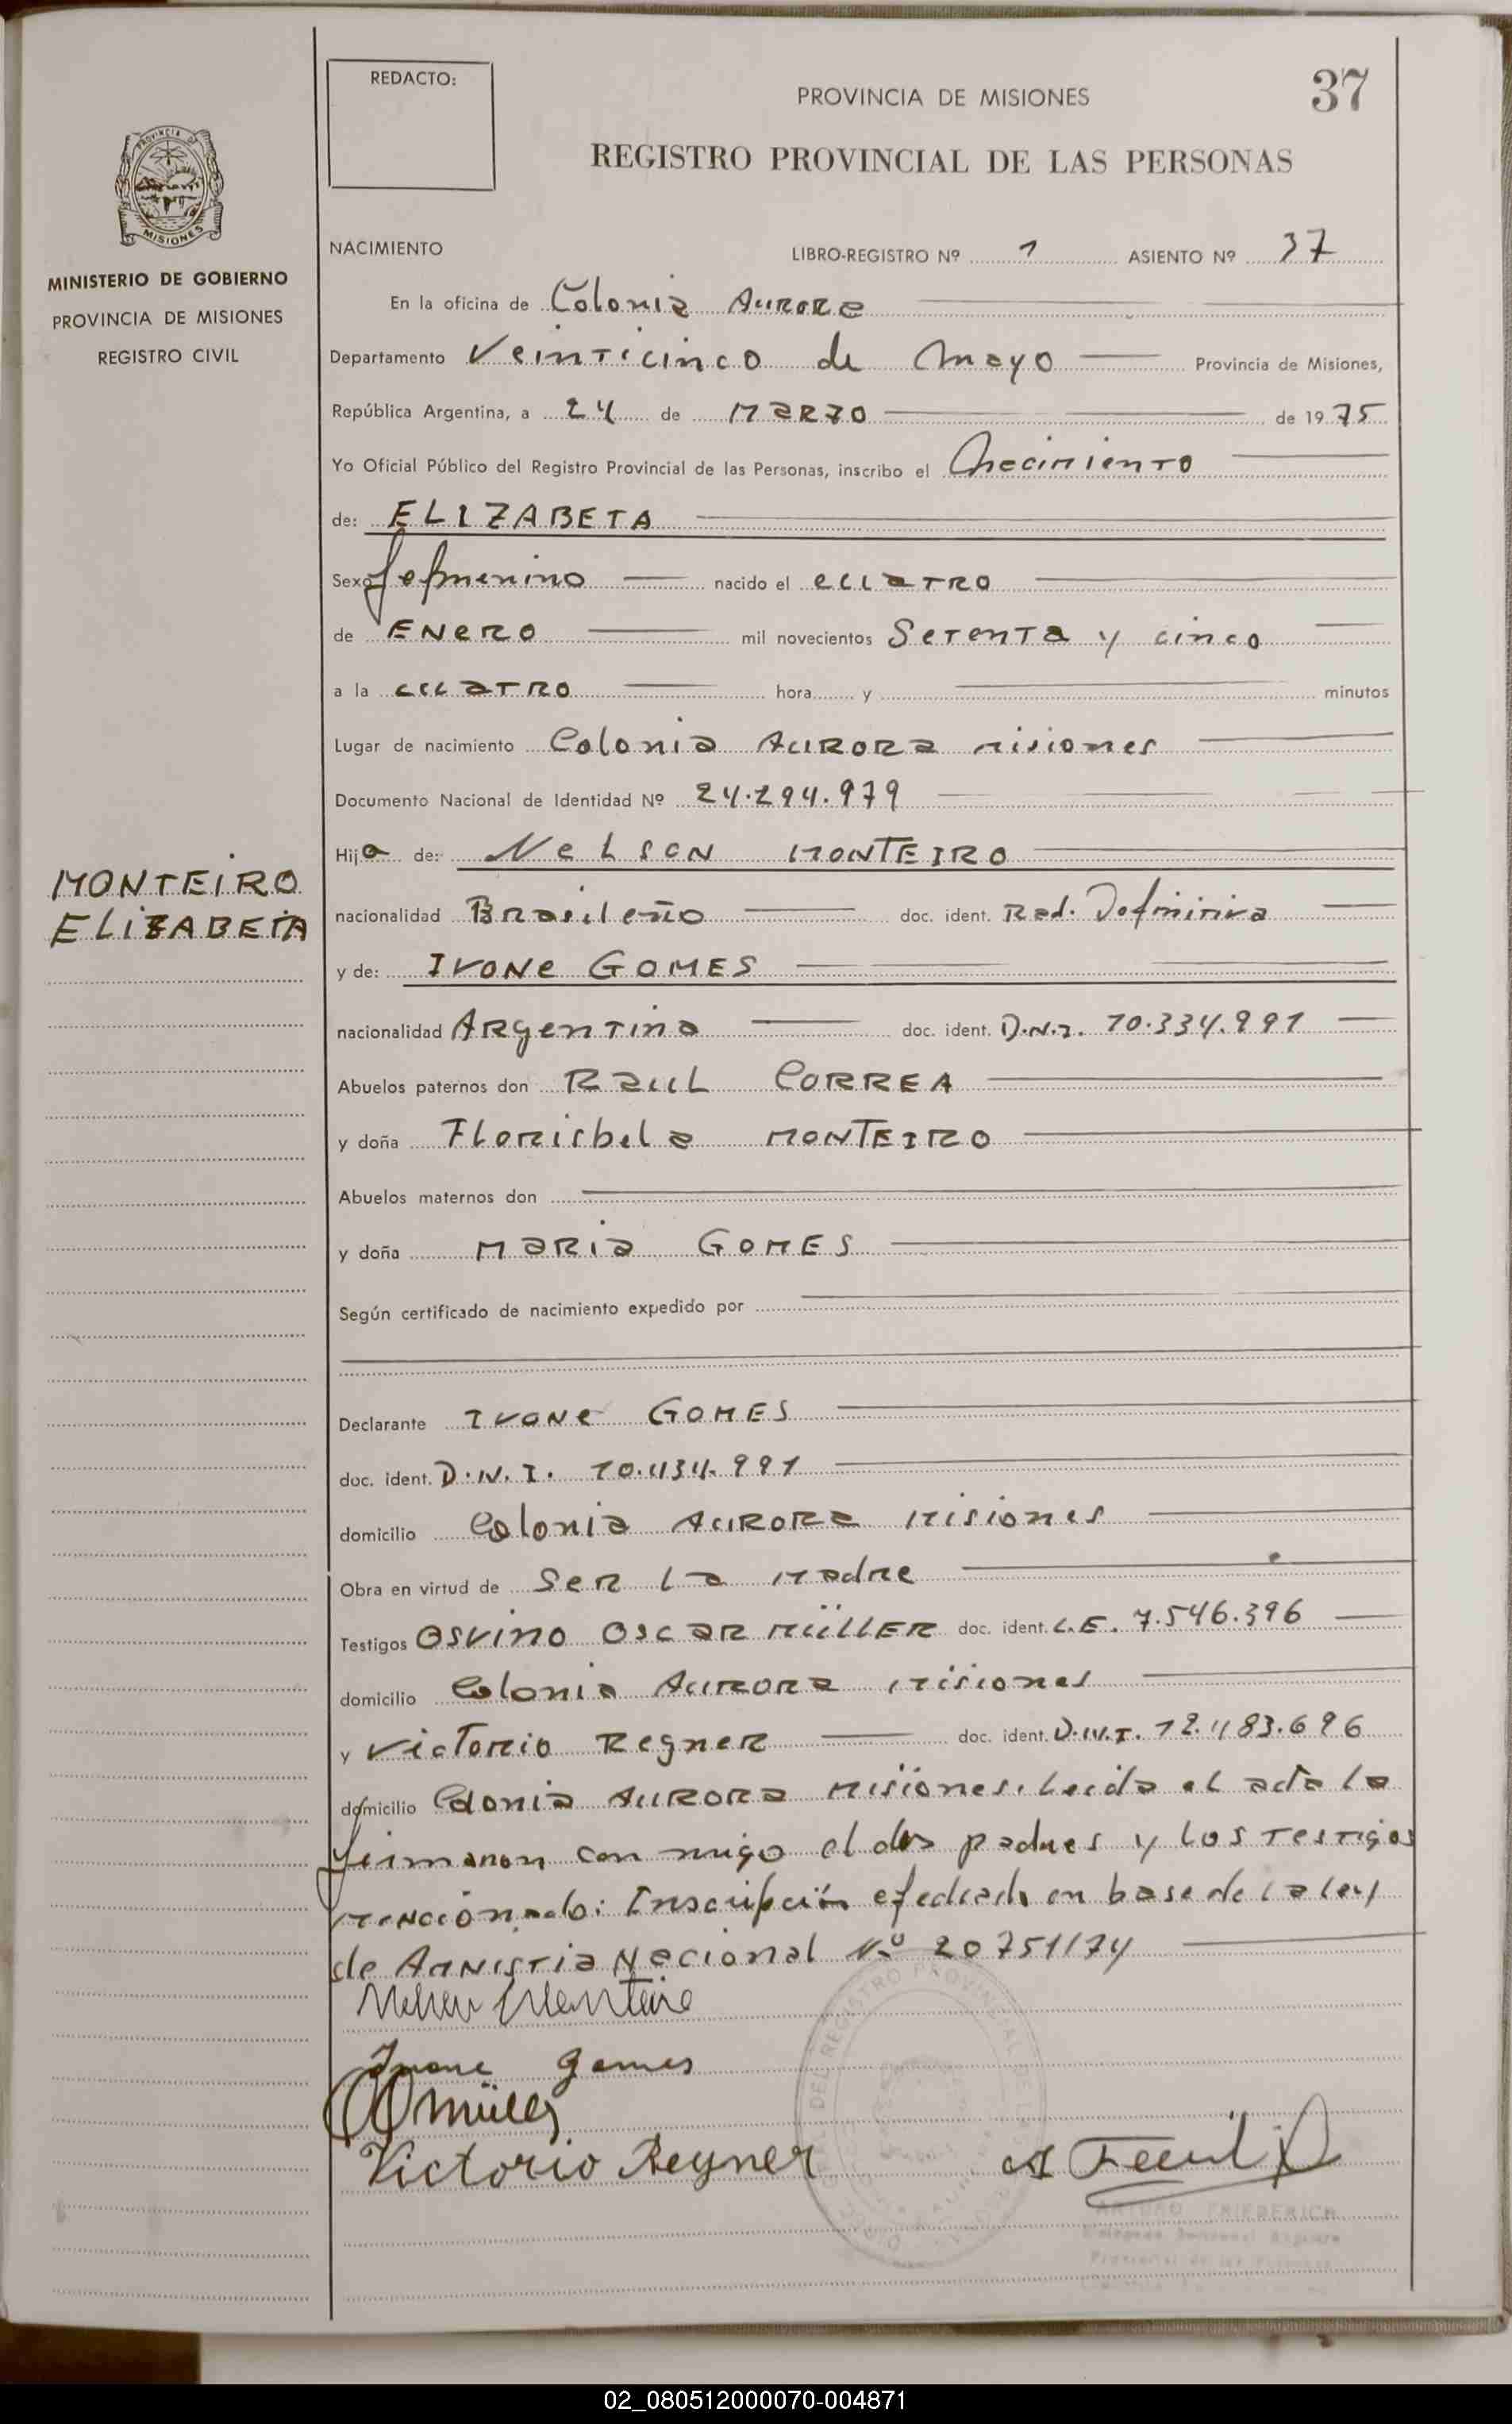 REDACTO:
PROVINCIA DE MISIONES
37
REGISTRO PROVINCIAL DE LAS PERSONAS
PROVINCIA DE
MISIONES
MINISTERIO DE GOBIERNO
PROVINCIA DE MISIONES
REGISTRO CIVIL
NACIMIENTO LIBRO-REGISTRO Nº 1 ASIENTO Nº 37
En la oficina de Colonia Aurora
Departamento Veinticinco de Mayo Provincia de Misiones,
República Argentina, a 24 de MARZO de 1975
Yo Oficial Público del Registro Provincial de las Personas, inscribo el Nacimiento
de: ELIZABETA
Sexo femenino nacido el cuatro
de Enero mil novecientos Setenta y cinco
a la cuatro hora y minutos
Lugar de nacimiento Colonia Aurora misiones
Documento Nacional de Identidad Nº 24.294.979
Hija de: Nelson MONTEIRO
MONTEIRO
ELIZABETA
nacionalidad Brasileño doc. ident. Rad. Definitiva
y de: Ivone GOMES
nacionalidad Argentina doc. ident. D.N.I. 10.334.991
Abuelos paternos don Raul CORREA
y doña Florisbela MONTEIRO
Abuelos maternos don
y doña Maria GOMES
Según certificado de nacimiento expedido por
Declarante Ivone GOMES
doc. ident. D.N.I. 10.434.991
domicilio Colonia Aurora Misiones
Obra en virtud de Ser la Madre
Testigos Osvino Oscar MüLLER doc. ident. L.E. 7.546.396
domicilio Colonia Aurora Misiones
y Victorio Regner doc. ident. D.N.I. 12.483.696
domicilio Colonia Aurora Misiones. Leida el acta la
firmaron con migo el dos padres y los testigos
mencionado: Inscripción efectuada en base de la ley
de Amnistia Nacional Nº 20751/74
Nelson Monteiro
Ivone Gomes
OOMüller
Victorio Regner
ARTURO FRIEDERICH
02_080512000070-004871